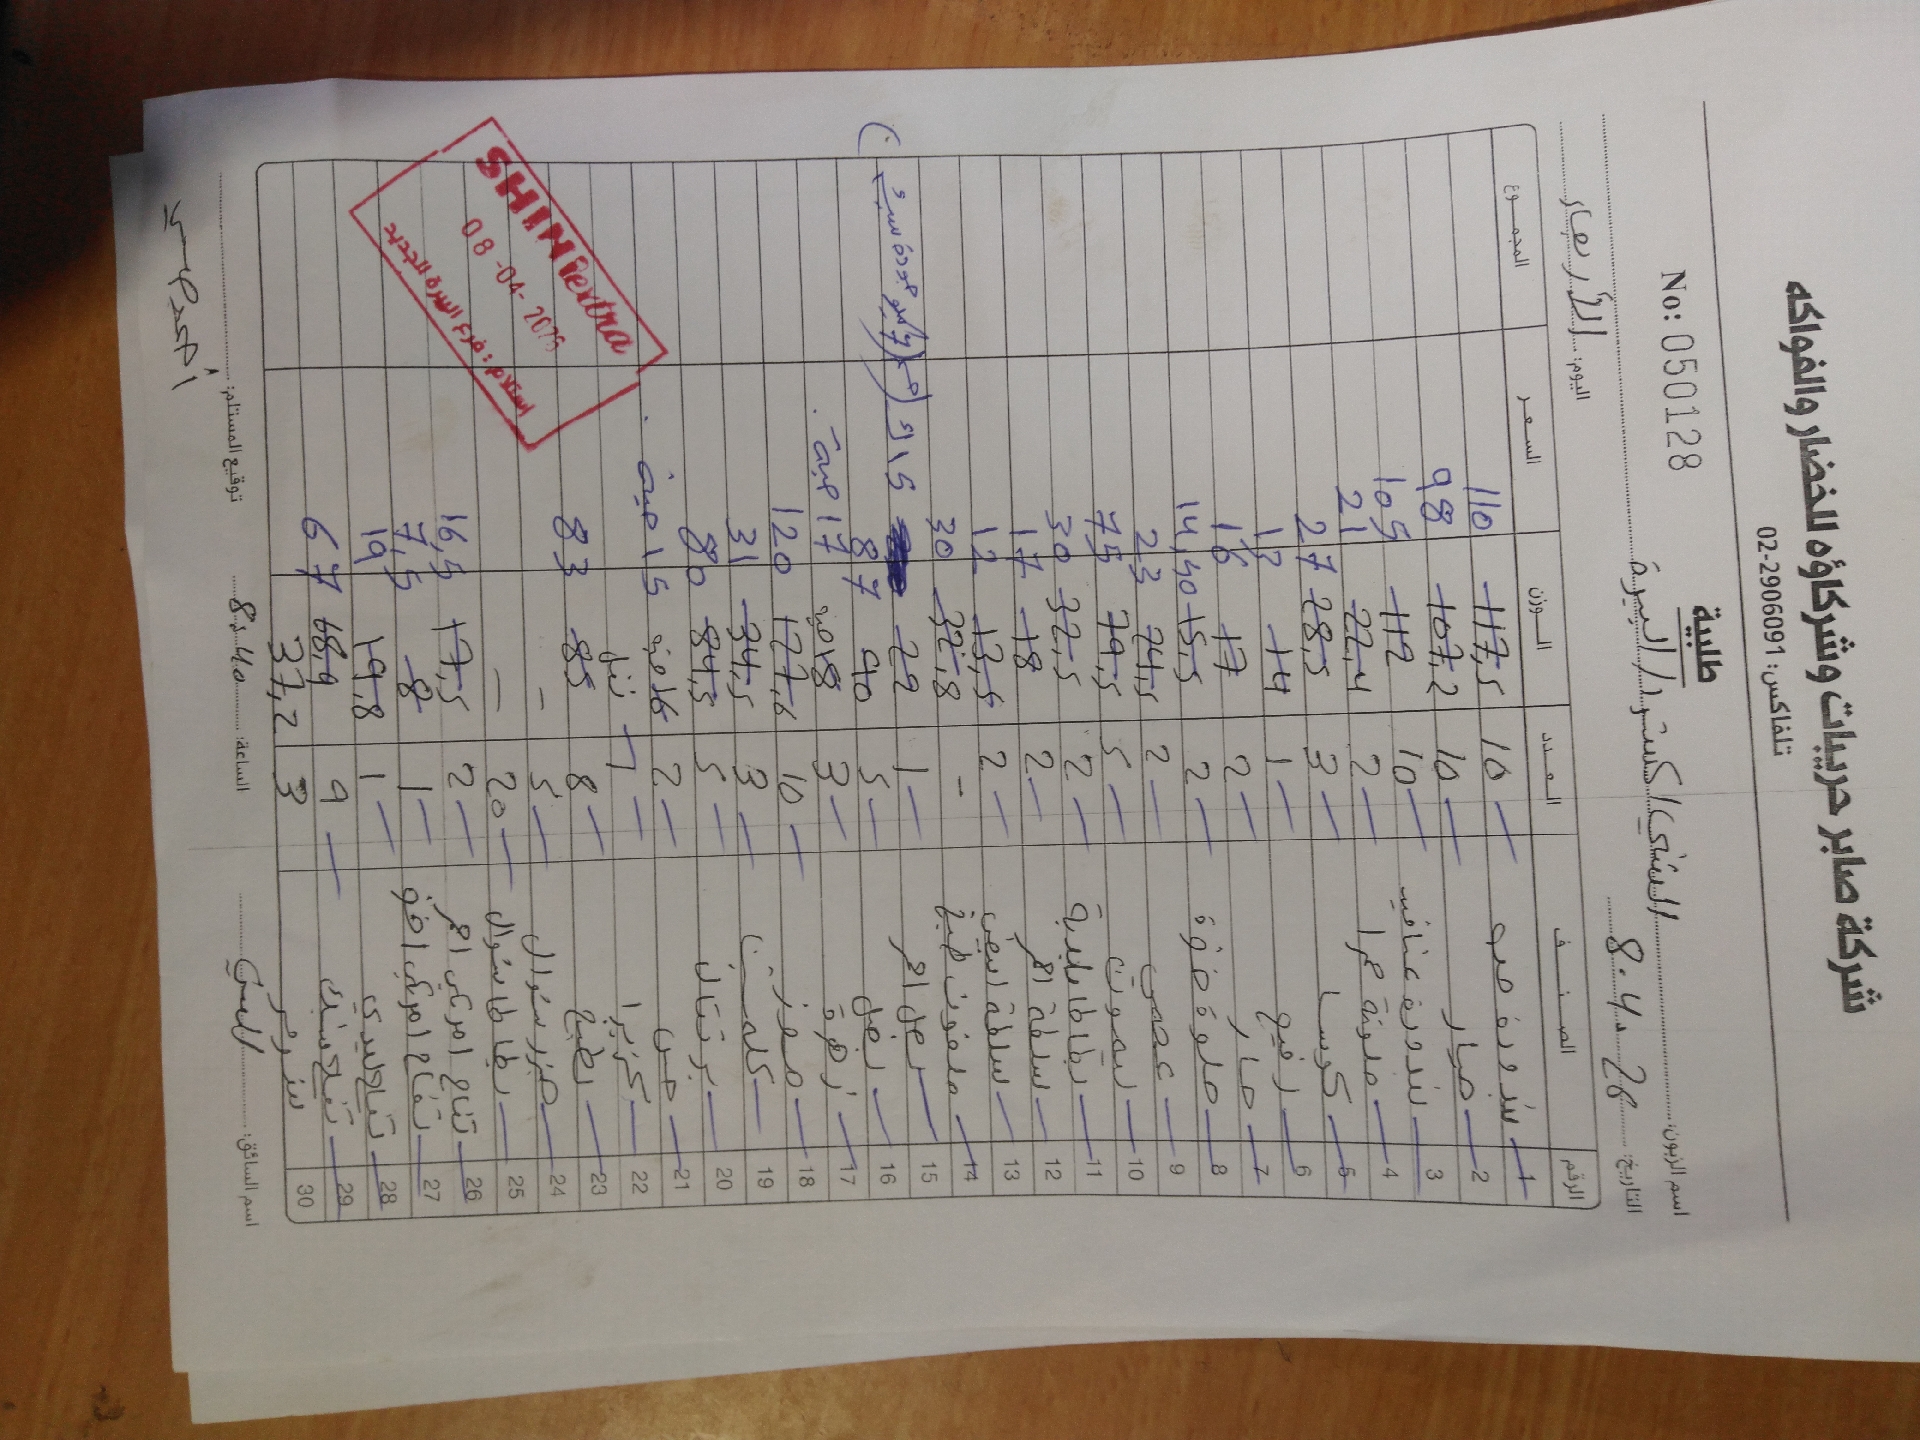 شركة صابر حريبات وشركاؤه للخضار والفواكه
تلفاكس: 02-2906091
طلبية
No: 050128
اسم الزبون: الشني اكسترا / البيرة
التاريخ: 8.4.26
اليوم: الأربعاء
الرقم الصنف العدد الوزن السعر المجموع
1 بندورة 10 117,5 110
2 خيار 10 107,2 98
3 بندورة عناقيد 10 112 105
4 ملونة حمرا 2 22,4 21
5 كوسا 3 28,5 27
6 رفيع 1 14 12
7 حار 2 17 16
8 حلوة خضرة 2 15,5 14,50
9 2 24,5 23
10 ليمون 5 79,5 75
11 بطاطا حلبية 2 32,5 30
12 سلطة احمر 2 18 17
13 سلطة ابيض 2 13,5 12
14 ملفوف - 32,8 30
15 بصل احمر 1 22
16 بصل 5 90 87
17 زهرة 3 18 حبة 17 حبة
18 موز 10 127,6 120
19 كلمنتينا 3 34,5 31
20 برتقال 5 84,5 80
21 خس 2 16 حبة 15 حبة
22 كزبرا 1
23 بطيخ 8 85 83
24 جزر شوال 5 -
25 بطاطا شوال 20 -
26 تفاح امريكي احمر 2 17,5 16,5
27 تفاح امريكي اخضر 1 8 7,5
28 تفاح 1 19,8 19
29 تفاح 9 68,9 67
30 3 37,2
اسم السائق:
الساعة: 8.40
توقيع المستلم:
SHINI extra
08-04-2026
استلام: فرع البيرة الجديد